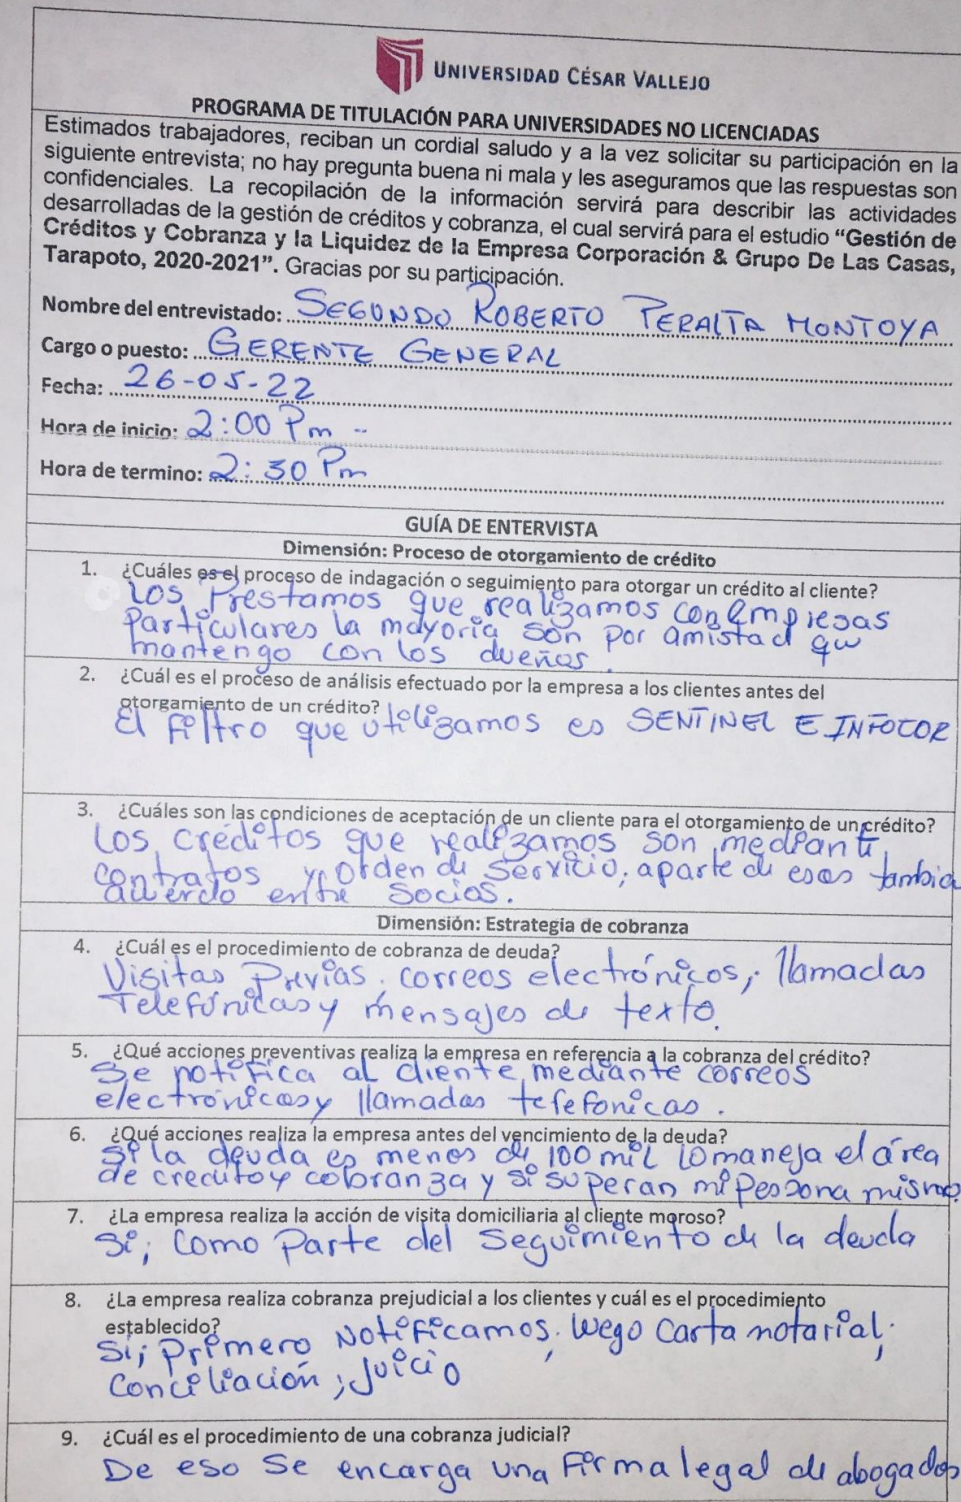 UNIVERSIDAD CÉSAR VALLEJO
PROGRAMA DE TITULACIÓN PARA UNIVERSIDADES NO LICENCIADAS
Estimados trabajadores, reciban un cordial saludo y a la vez solicitar su participación en la
siguiente entrevista; no hay pregunta buena ni mala y les aseguramos que las respuestas son
confidenciales. La recopilación de la información servirá para describir las actividades
desarrolladas de la gestión de créditos y cobranza, el cual servirá para el estudio “Gestión de
Créditos y Cobranza y la Liquidez de la Empresa Corporación & Grupo De Las Casas,
Tarapoto, 2020-2021”. Gracias por su participación.
Nombre del entrevistado: SEGUNDO ROBERTO PERALTA MONTOYA
Cargo o puesto: GERENTE GENERAL
Fecha: 26-05-22
Hora de inicio: 2:00 Pm --
Hora de termino: 2:30 Pm
GUÍA DE ENTERVISTA
Dimensión: Proceso de otorgamiento de crédito
1. ¿Cuáles es el proceso de indagación o seguimiento para otorgar un crédito al cliente?
Los Prestamos que realizamos con Empresas
Particulares la mayoria son por amistad qu
mantengo con los dueños.
2. ¿Cuál es el proceso de análisis efectuado por la empresa a los clientes antes del
otorgamiento de un crédito?
El filtro que utilizamos es SENTINEL E INFOCOR
3. ¿Cuáles son las condiciones de aceptación de un cliente para el otorgamiento de un crédito?
Los creditos que realizamos son mediante
contratos y orden de Servicio, aparte de esas tambie
acuerdo entre Socios.
Dimensión: Estrategia de cobranza
4. ¿Cuál es el procedimiento de cobranza de deuda?
Visitas Previas, correos electrónicos, llamadas
Telefónicas y mensajes de texto.
5. ¿Qué acciones preventivas realiza la empresa en referencia a la cobranza del crédito?
Se notifica al cliente mediante correos
electrónicos y llamadas telefonicas.
6. ¿Qué acciones realiza la empresa antes del vencimiento de la deuda?
Si la deuda es menos de 100 mil lo maneja el área
de credito y cobranza y si superan mi persona misma
7. ¿La empresa realiza la acción de visita domiciliaria al cliente moroso?
Si, como parte del Seguimiento de la deuda
8. ¿La empresa realiza cobranza prejudicial a los clientes y cuál es el procedimiento
establecido?
Si; Primero Notificamos, luego Carta notarial;
Conciliación; Juicio
9. ¿Cuál es el procedimiento de una cobranza judicial?
De eso Se encarga una Firma legal de abogados